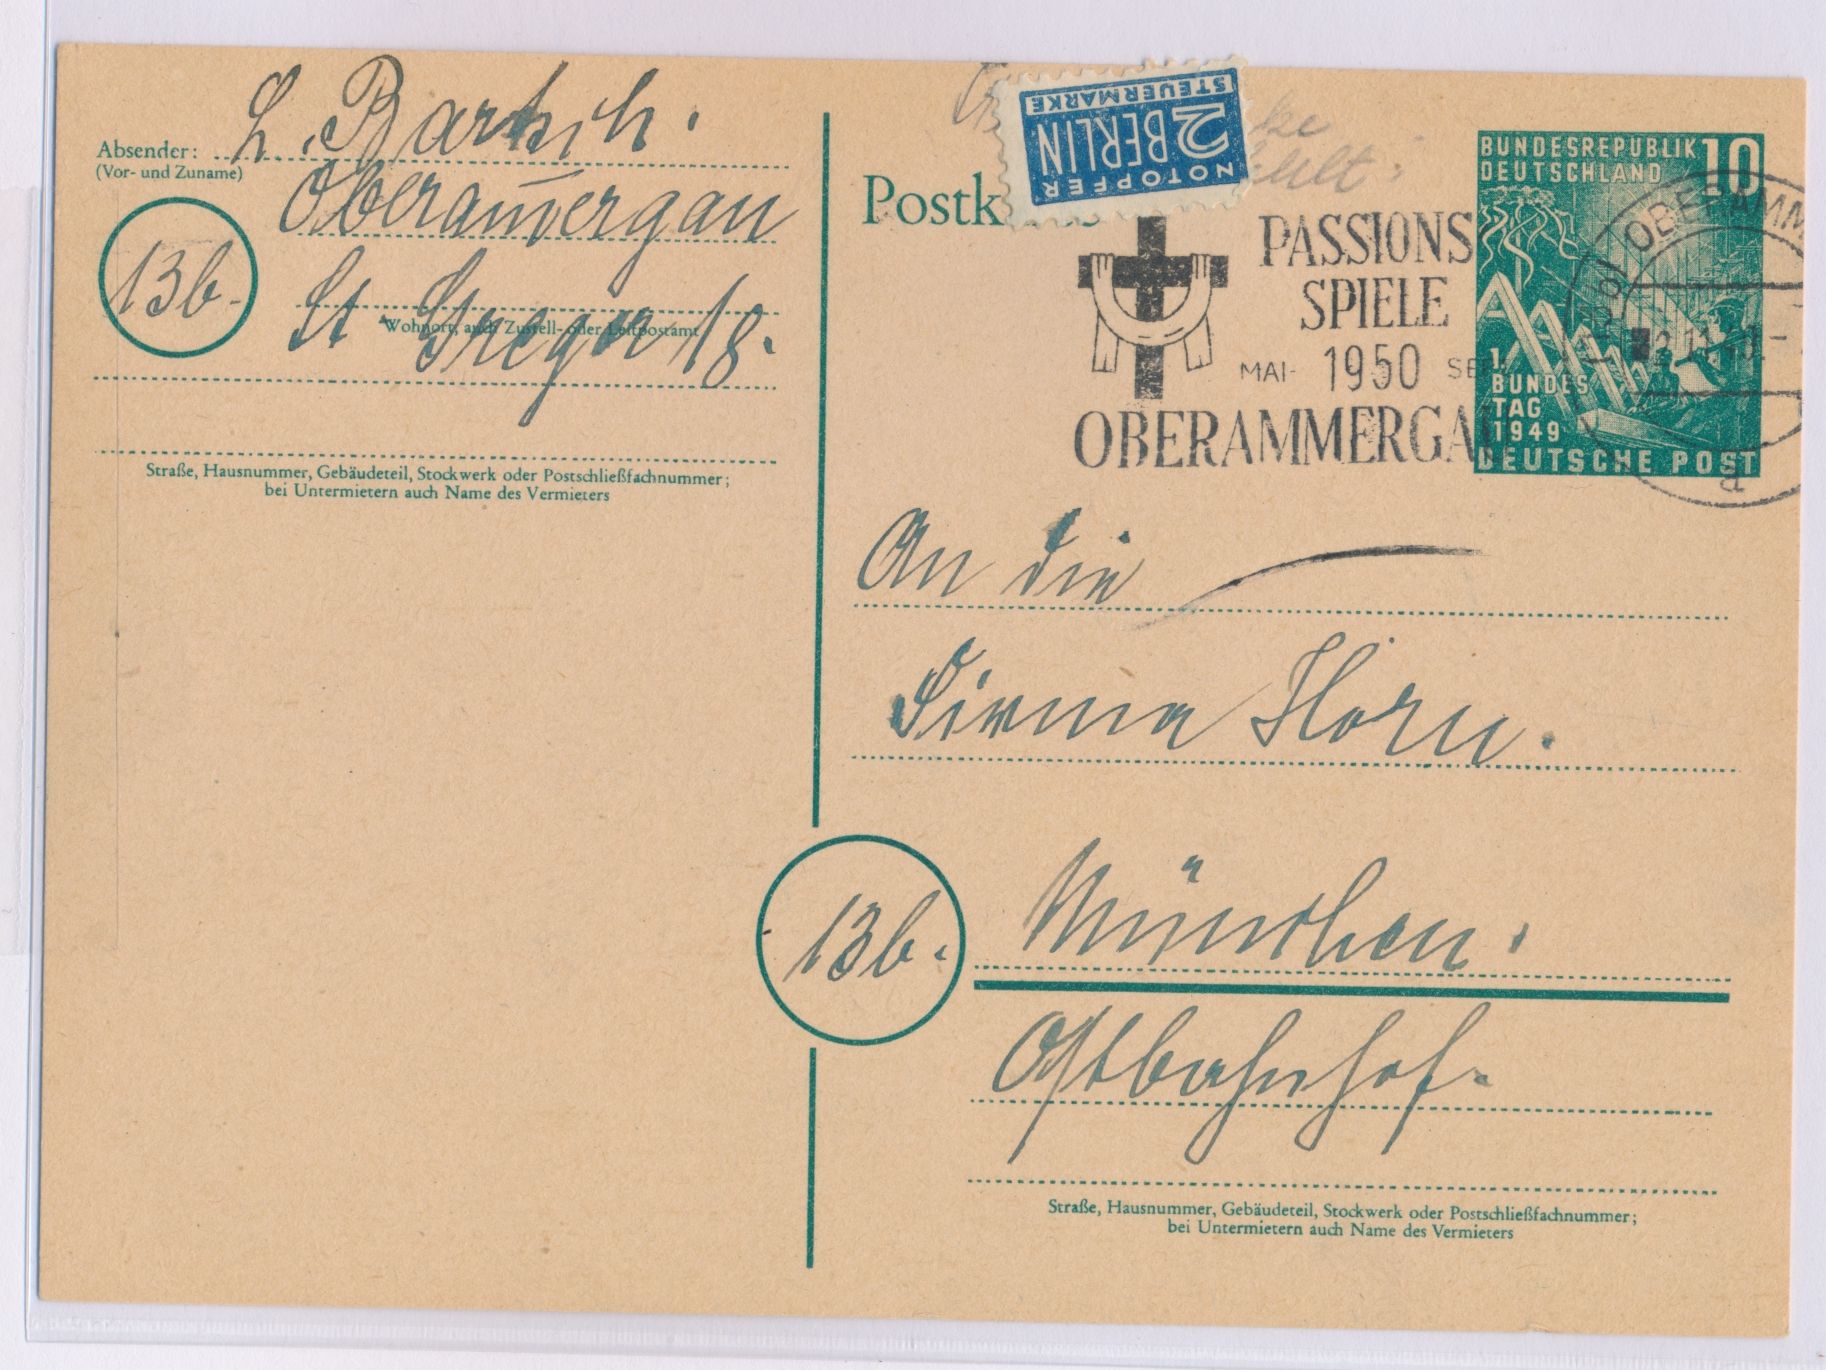 Absender: L. Bartsch.
(Vor- und Zuname)
Oberam̄ergau
13b.
St Gregor 18.
Wohnort, auch Zustell- oder Leitpostamt
Straße, Hausnummer, Gebäudeteil, Stockwerk oder Postschließfachnummer;
bei Untermietern auch Name des Vermieters
NOTOPFER
2 BERLIN
STEUERMARKE
Postk
PASSIONS
SPIELE
MAI- 1950 SE
OBERAMMERGAU
BUNDESREPUBLIK 10
DEUTSCHLAND
1.
BUNDES
TAG
1949
DEUTSCHE POST
(13b) OBERAMM
a
An die
Firma Horn.
13b.
München.
Ostbahnhof.
Straße, Hausnummer, Gebäudeteil, Stockwerk oder Postschließfachnummer;
bei Untermietern auch Name des Vermieters